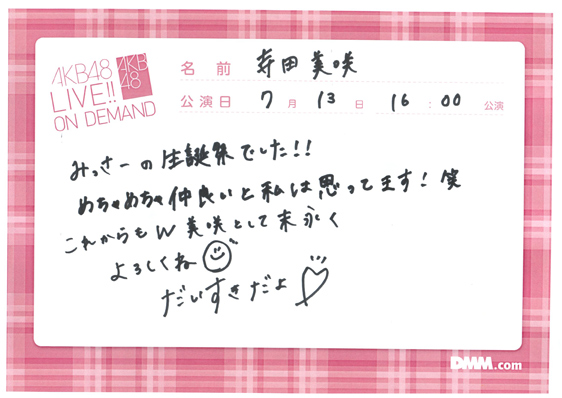 AKB48
LIVE!!
ON DEMAND
AKB
48
名前 寺田美咲
公演日 7月13日 16:00公演
みっさーの生誕祭でした!!
めちゃめちゃ仲良いと私は思ってます!笑
これからもW美咲として末永く
よろしくね
だいすきだよ
DMM.com